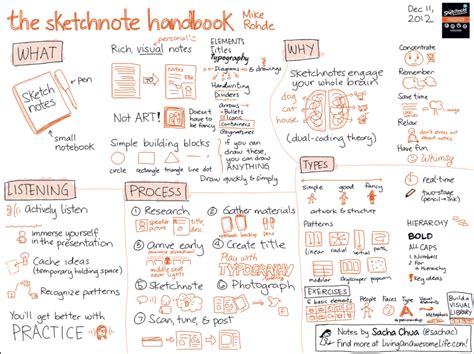 the sketchnote handbook
Mike
Rohde
Dec 11,
2012
WHAT
Sketch
notes
pen
small
notebook
personal
Rich, visual notes
ELEMENTS
Titles
Typography
Diagrams & drawings
Handwriting
Dividers
Arrows
Bullets
Icons
Containers
Signatures
Not ART!
Doesn't
have to
be fancy
Simple building blocks
circle rectangle triangle line dot
if you can
draw these,
you can draw
ANYTHING
Draw quickly & simply
WHY
Sketchnotes engage
your whole brain!
dog
cat
house
(dual-coding theory)
Concentrate
Remember
Save time
Relax
don't
stress out
about notes
Have fun
Whimsy
LISTENING
Actively listen
Immerse yourself
in the presentation
Cache ideas
(temporary holding space)
Recognize patterns
You'll get better with
PRACTICE
PROCESS
1 Research
speaker
topic
2 Gather materials
3 Arrive early
middle seat
4 Create title
5 Sketchnote
Play with
TYPOGRAPHY
6 Photograph
7 Scan, tune, & post
TYPES
simple
good
fancy
artwork & structure
real-time
two-stage
(pencil→ink)
PATTERNS
linear
radial
vertical
path
modular
skyscraper
popcorn
HIERARCHY
BOLD
ALL CAPS
1. Numbers
2. For
a. Hierarchy
Key ideas
EXERCISES
5 basic elements
People
Faces
Type
Visual
Metaphors
Build a
VISUAL
LIBRARY
Notes by Sacha Chua (@sachac)
Find more at LivingAnAwesomeLife.com!